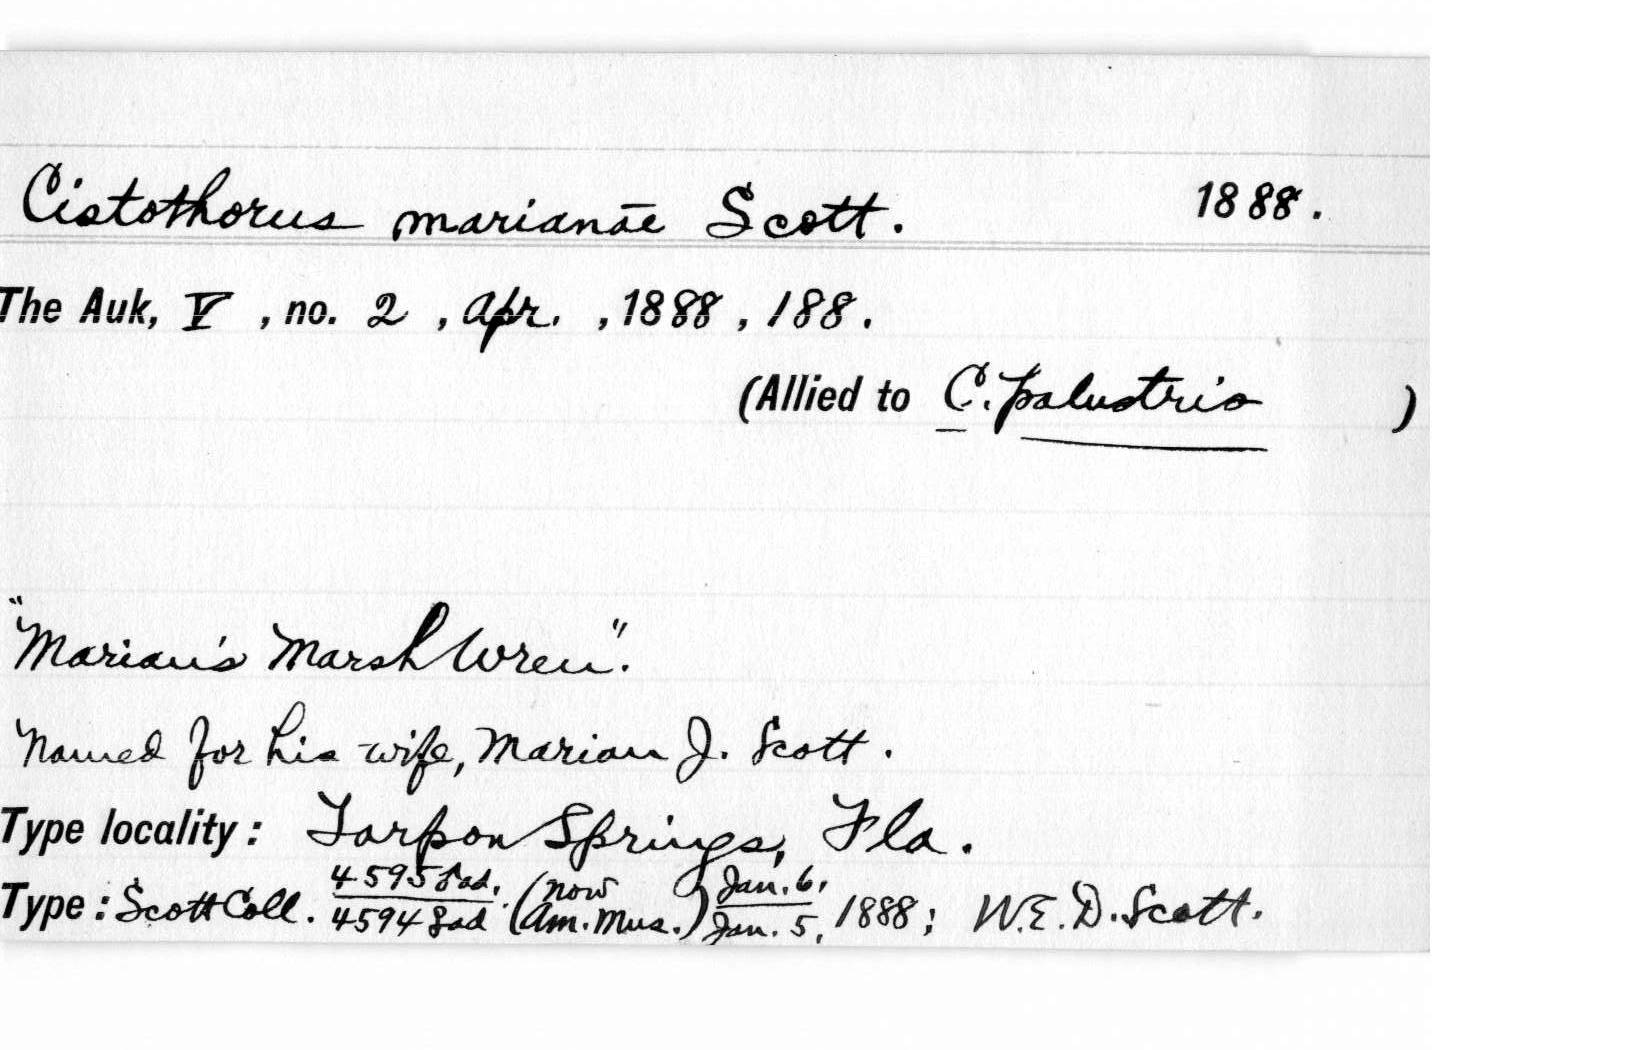 Cistothorus marianae Scott. 1888.
The Auk, V, no. 2, Apr., 1888, 188.
(Allied to C. palustris )
"Marian's Marsh Wren".
Named for his wife, Marian J. Scott.
Type locality: Tarpon Springs, Fla.
Type: Scott Coll. 4595 ♂ad. / 4594 ♀ad. (now Am. Mus.) Jan. 6, / Jan. 5, 1888; W.E.D. Scott.